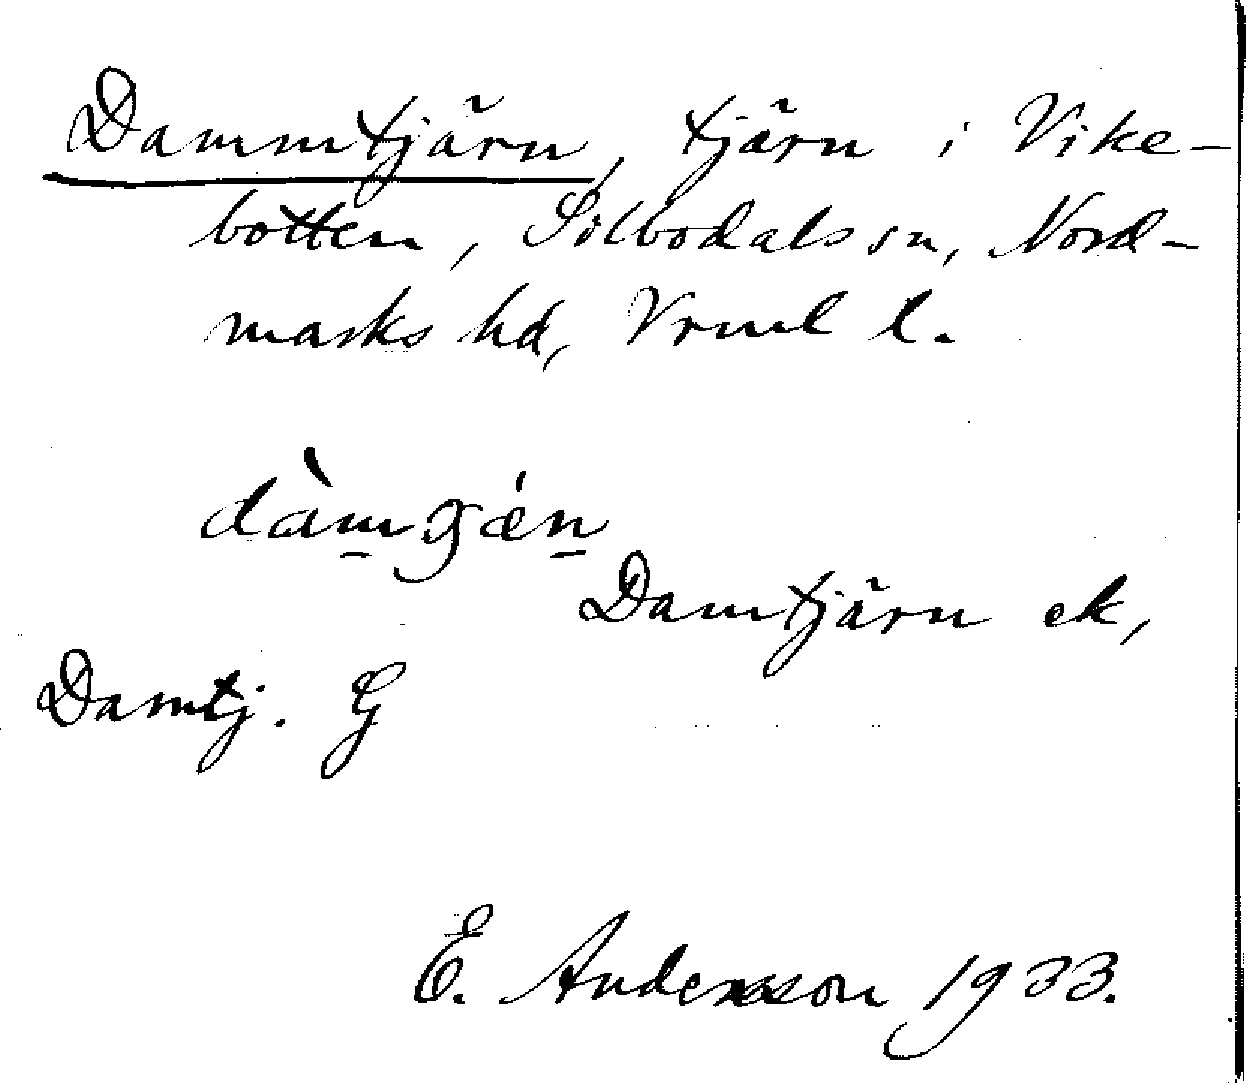 Dammtjärn, tjärn i Vike-
botten, Silbodals sn, Nord-
marks hd, Vrml l.
Damtjärn ek,
Damtj. G
E. Andersson 1933.